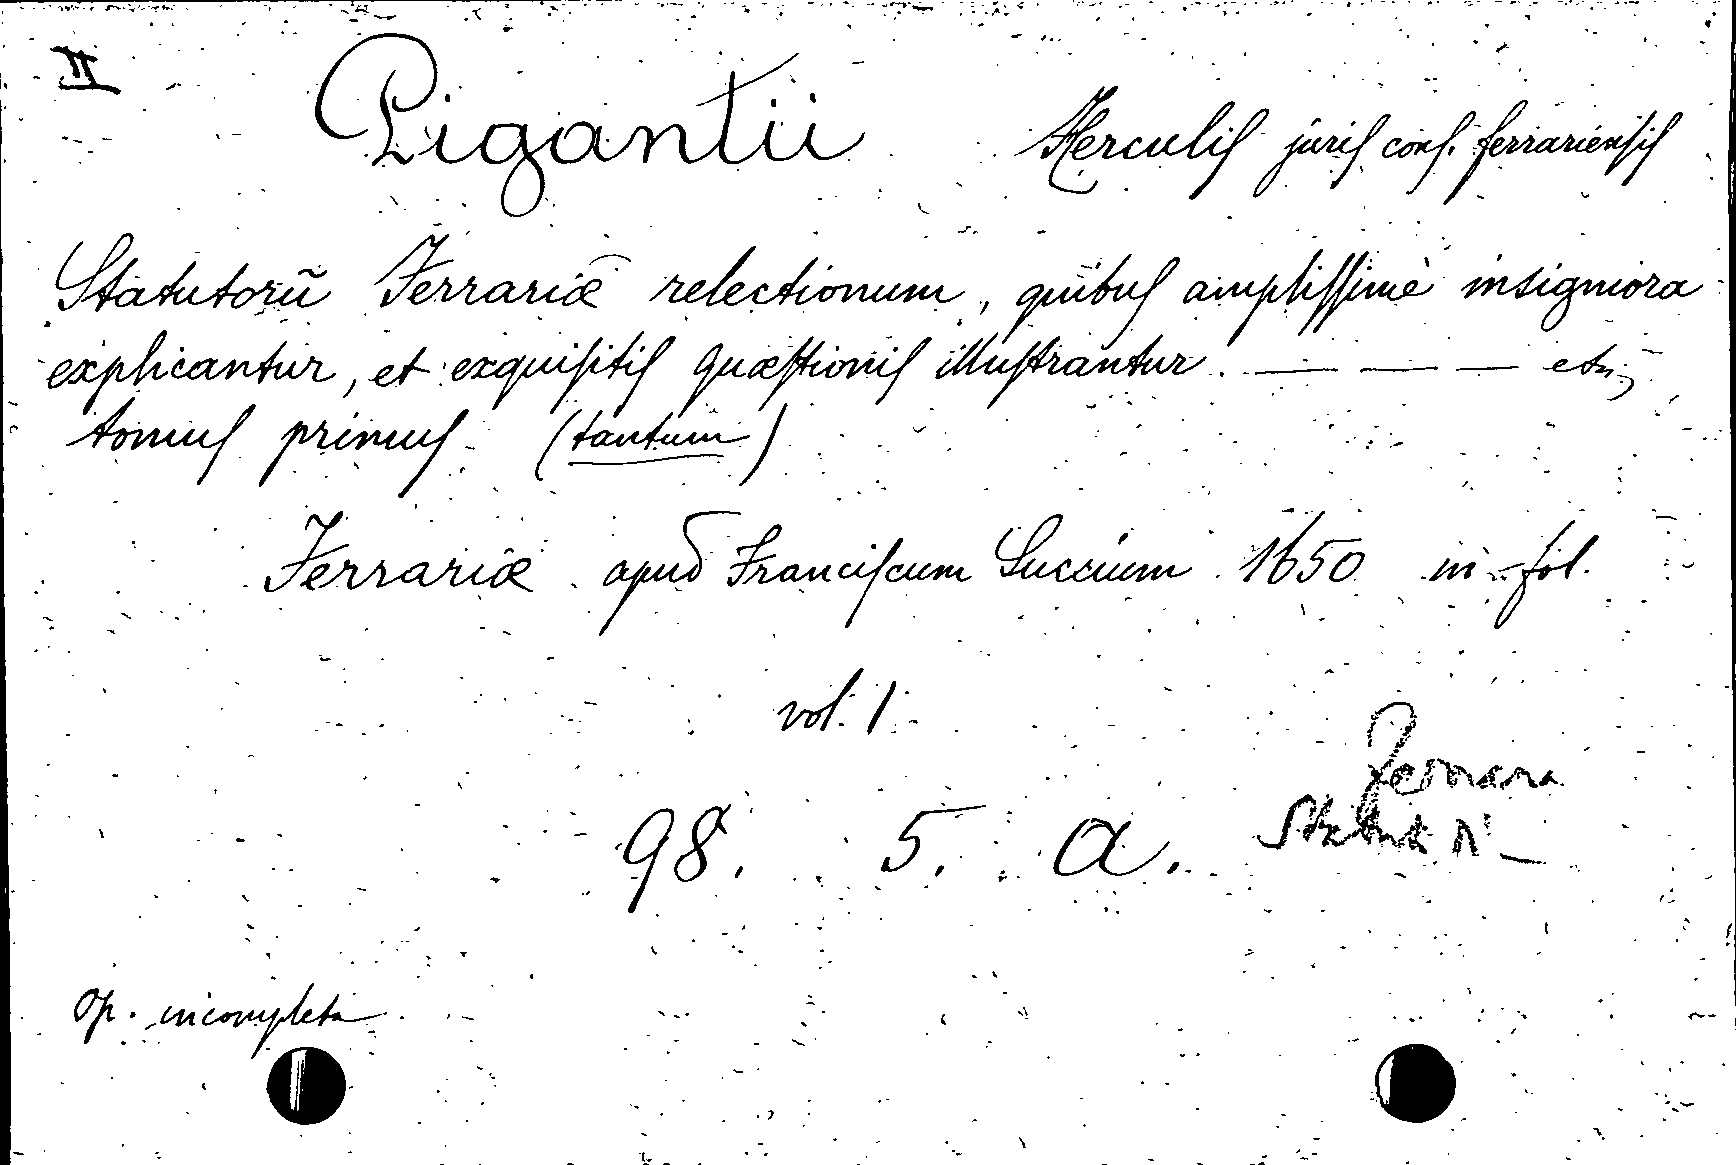 II
Pigantii Herculis juris cons. ferrariensis
Statutorũ Ferrariæ relectionum, quibus amplissimè insigniora
explicantur, et exquisitis quæstionis illustrantur. — — — etc;
tomus primus (tantum)
Ferrariæ apud Franciscum Succium 1650 in-fol.
vol. 1
Ferrara
98. 5. a. Statuti
Op. incompleta